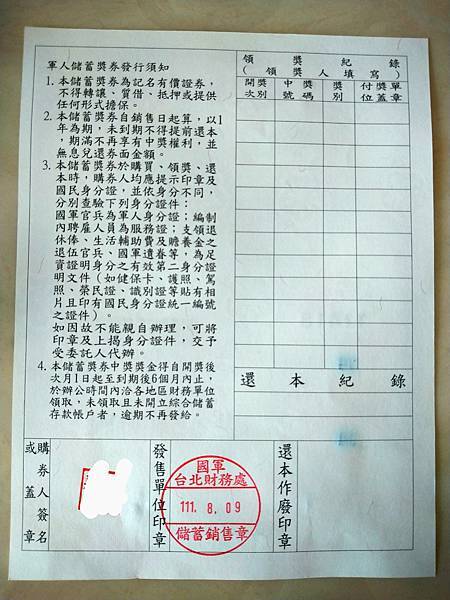 軍人儲蓄獎券發行須知
1. 本儲蓄獎券為記名有價證券，
不得轉讓、質借、抵押或提供
任何形式擔保。
2. 本儲蓄獎券自銷售日起算，以1
年為期，未到期不得提前還本
，期滿不再享有中獎權利，並
無息兌還券面金額。
3. 本儲蓄獎券於購買、領獎、還
本時，購券人均應提示印章及
國民身分證，並依身分不同，
分別查驗下列身分證件：
國軍官兵為軍人身分證；編制
內聘雇人員為服務證；支領退
休俸、生活補助費及贍養金之
退伍官兵、國軍遺眷等，為足
資證明身分之有效第二身分證
明文件（如健保卡、護照、駕
照、榮民證、識別證等貼有相
片且印有國民身分證統一編號
之證件）。
如因故不能親自辦理，可將
印章及上揭身分證件，交予
受委託人代辦。
4. 本儲蓄獎券中獎獎金得自開獎後
次月1日起至到期後6個月內止，
於辦公時間內洽各地區財務單位
領取，未領取且未開立綜合儲蓄
存款帳戶者，逾期不再發給。
領獎紀錄
（領獎人填寫）
開獎次別
中獎號碼
獎別
付獎單位蓋章
還本紀錄
購券人簽名或蓋章
發售單位印章
國軍
台北財務處
111. 8. 09
儲蓄銷售章
還本作廢印章